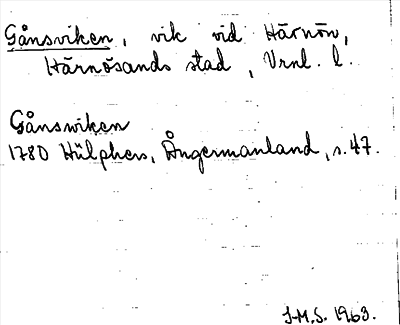 Gånsviken, vik vid Härnön,
Härnösands stad, Vrnl. l.
Gånswiken
1780 Hülphers, Ångermanland, s. 47.
I.M.S. 1963.